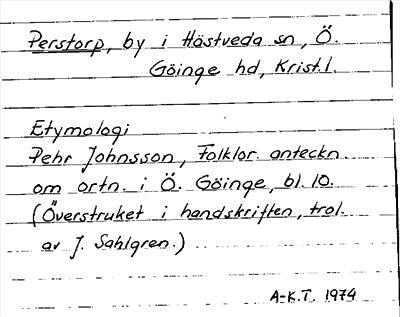 Perstorp, by i Hästveda sn, Ö.
Göinge hd, Krist.l.
Etymologi
Pehr Johnsson, Folklor. anteckn.
om ortn. i Ö. Göinge, bl. 10.
(Överstruket i handskriften, trol.
av J. Sahlgren.)
A-K.T. 1974